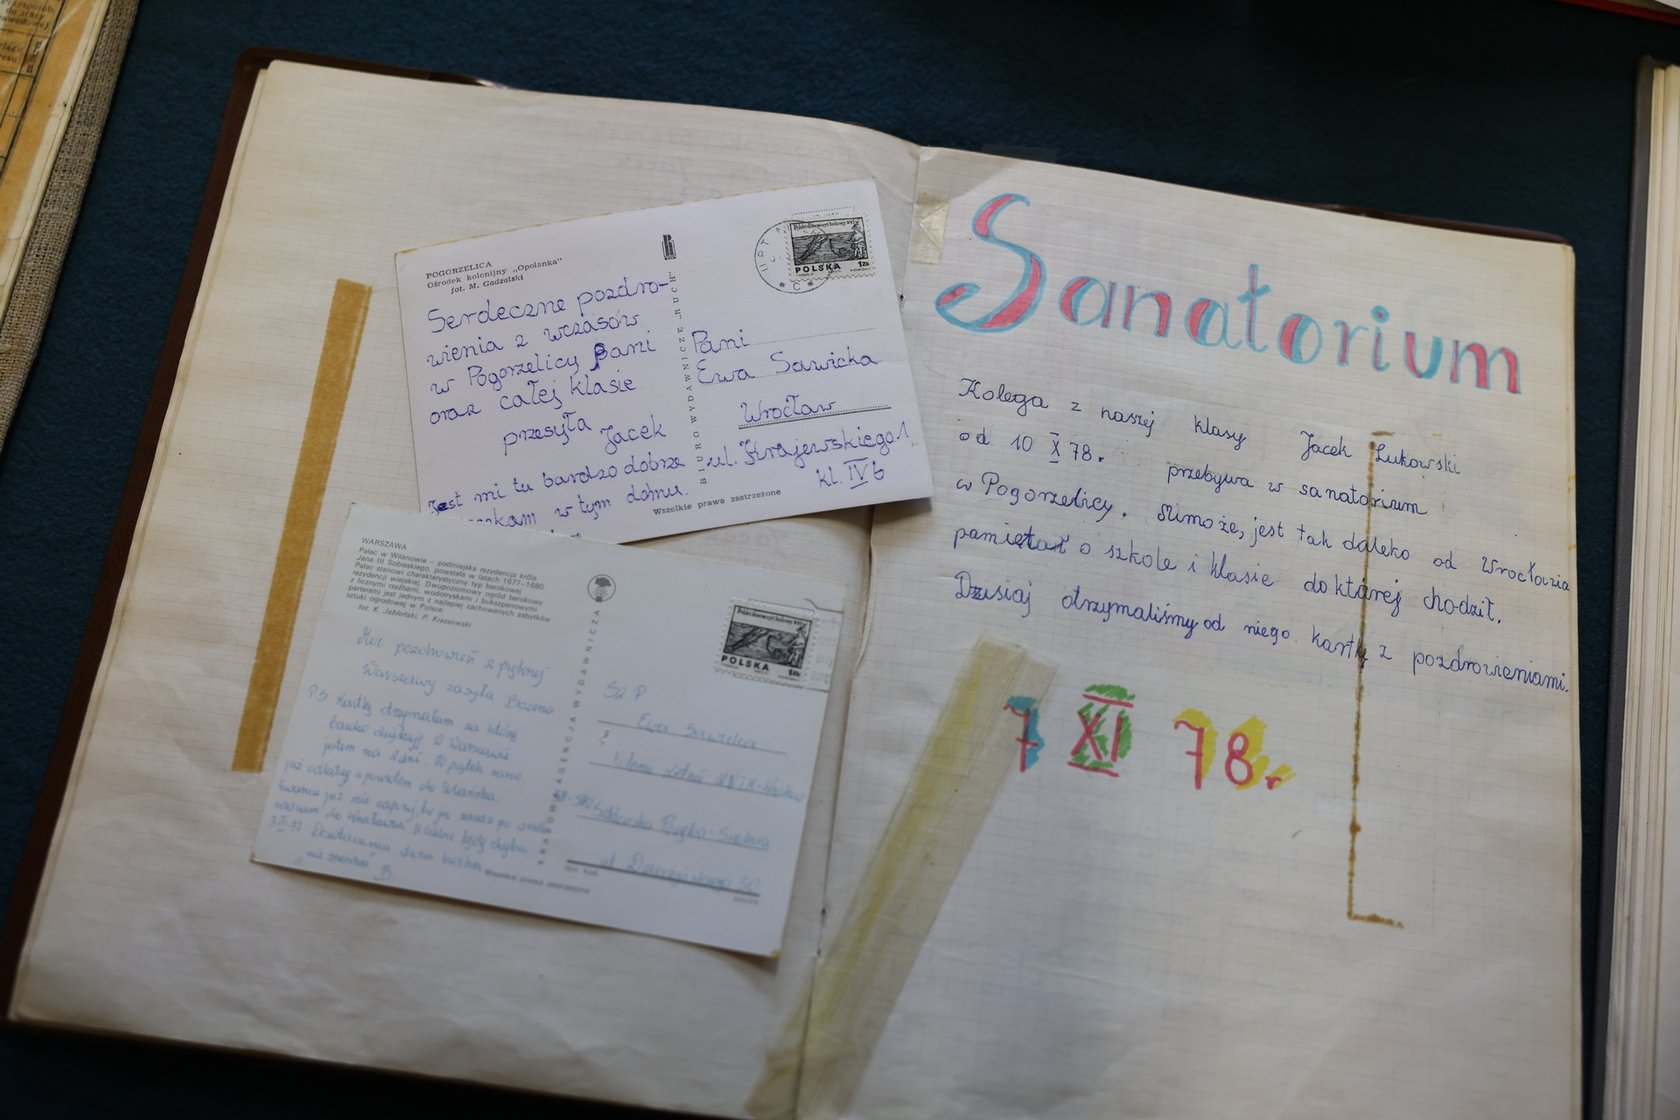 POGORZELICA
Ośrodek kolonijny „Opolanka"
fot. M. Gadzalski
Serdeczne pozdro-
wienia z wczasów
w Pogorzelicy Pani
oraz całej klasie
przesyła Jacek
Jest mi tu bardzo dobrze
w tym domu.
BIURO WYDAWNICZE „RUCH"
Wszelkie prawa zastrzeżone
POLSKA 1zł
Pani
Ewa Sawicka
Wrocław
ul. Krajewskiego 1
kl. IV b
WARSZAWA
Pałac w Wilanowie – podmiejska rezydencja króla
Jana III Sobieskiego, powstała w latach 1677–1680.
Pałac stanowi charakterystyczny typ barokowej
rezydencji wiejskiej. Dwupoziomowy ogród barokowy
z licznymi rzeźbami, wodotryskami i bukszpanowymi
parterami jest jednym z najlepiej zachowanych zabytków
sztuki ogrodowej w Polsce.
fot. K. Jabłoński, P. Krassowski
Moc pozdrowień z pięknej
Warszawy zasyła Bożena
P.S. Kartkę otrzymałam za którą
bardzo dziękuję. W Warszawie
jestem na W piątek rano
już z powrotem do Gdańska.
"nie można" B.
KRAJOWA AGENCJA WYDAWNICZA
Wszelkie prawa zastrzeżone
POLSKA 1zł
Sz. P.
Ewa Sawicka
ul. Dzierżyńskiego 30
Sanatorium
Kolega z naszej klasy Jacek Łukowski
od 10 X 78r. przebywa w sanatorium
w Pogorzelicy. Mimo że, jest tak daleko od Wrocławia
pamiętał o szkole i klasie do której chodził.
Dzisiaj otrzymaliśmy od niego kartkę z pozdrowieniami.
7 XI 78r